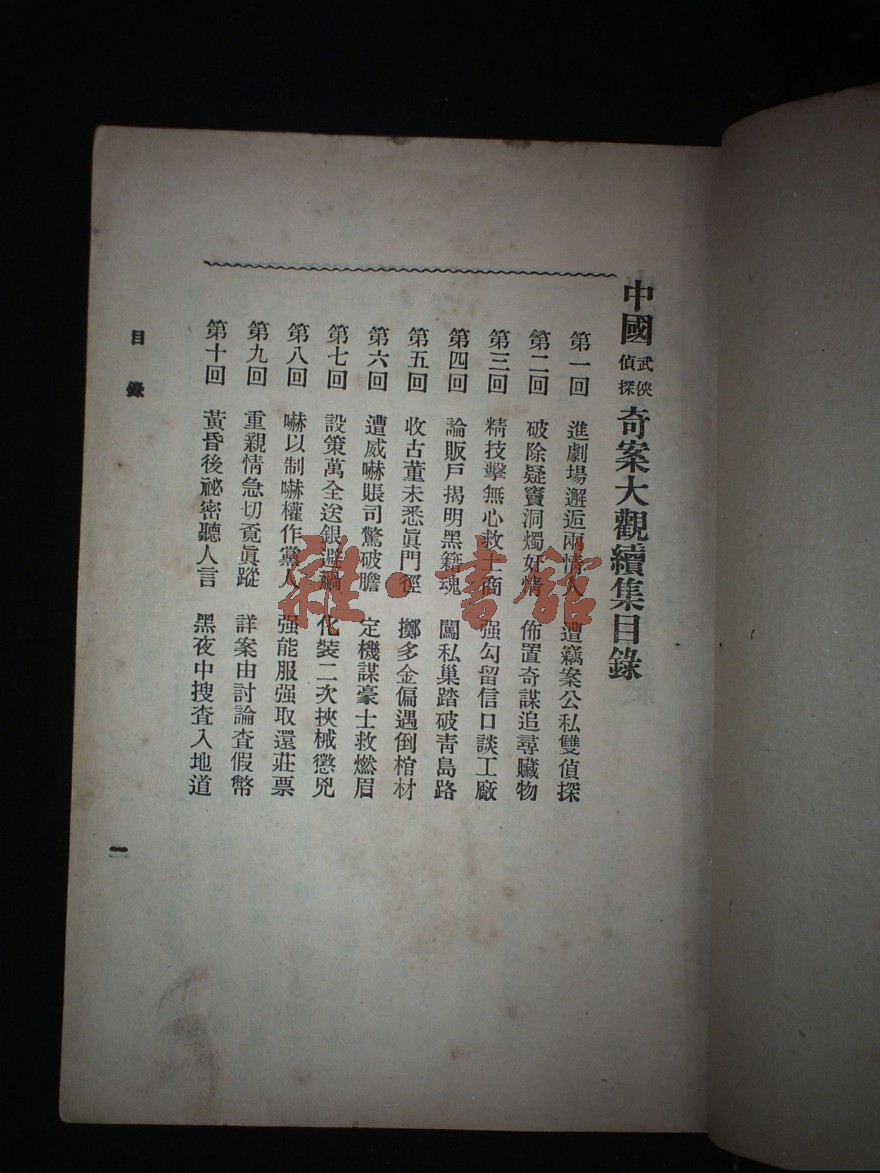 中國武俠偵探奇案大觀續集目錄
第一回 進劇場邂逅兩情人 遭竊案公私雙偵探
第二回 破除疑竇洞燭奸情 佈置奇謀追尋贓物
第三回 精技擊無心救士商 强勾留信口談工廠
第四回 論販戶揭明黑籍魂 闖私巢踏破靑島路
第五回 收古董未悉眞門徑 擲多金偏遇倒棺材
第六回 遭威嚇賬司驚破膽 定機謀豪士救燃眉
第七回 設策萬全送銀避禍 化裝二次挾械懲兇
第八回 嚇以制嚇權作黨人 强能服强取還莊票
第九回 重親情急切覓眞蹤 詳案由討論査假幣
第十回 黃昏後祕密聽人言 黑夜中搜査入地道
目錄
一
雜·書館